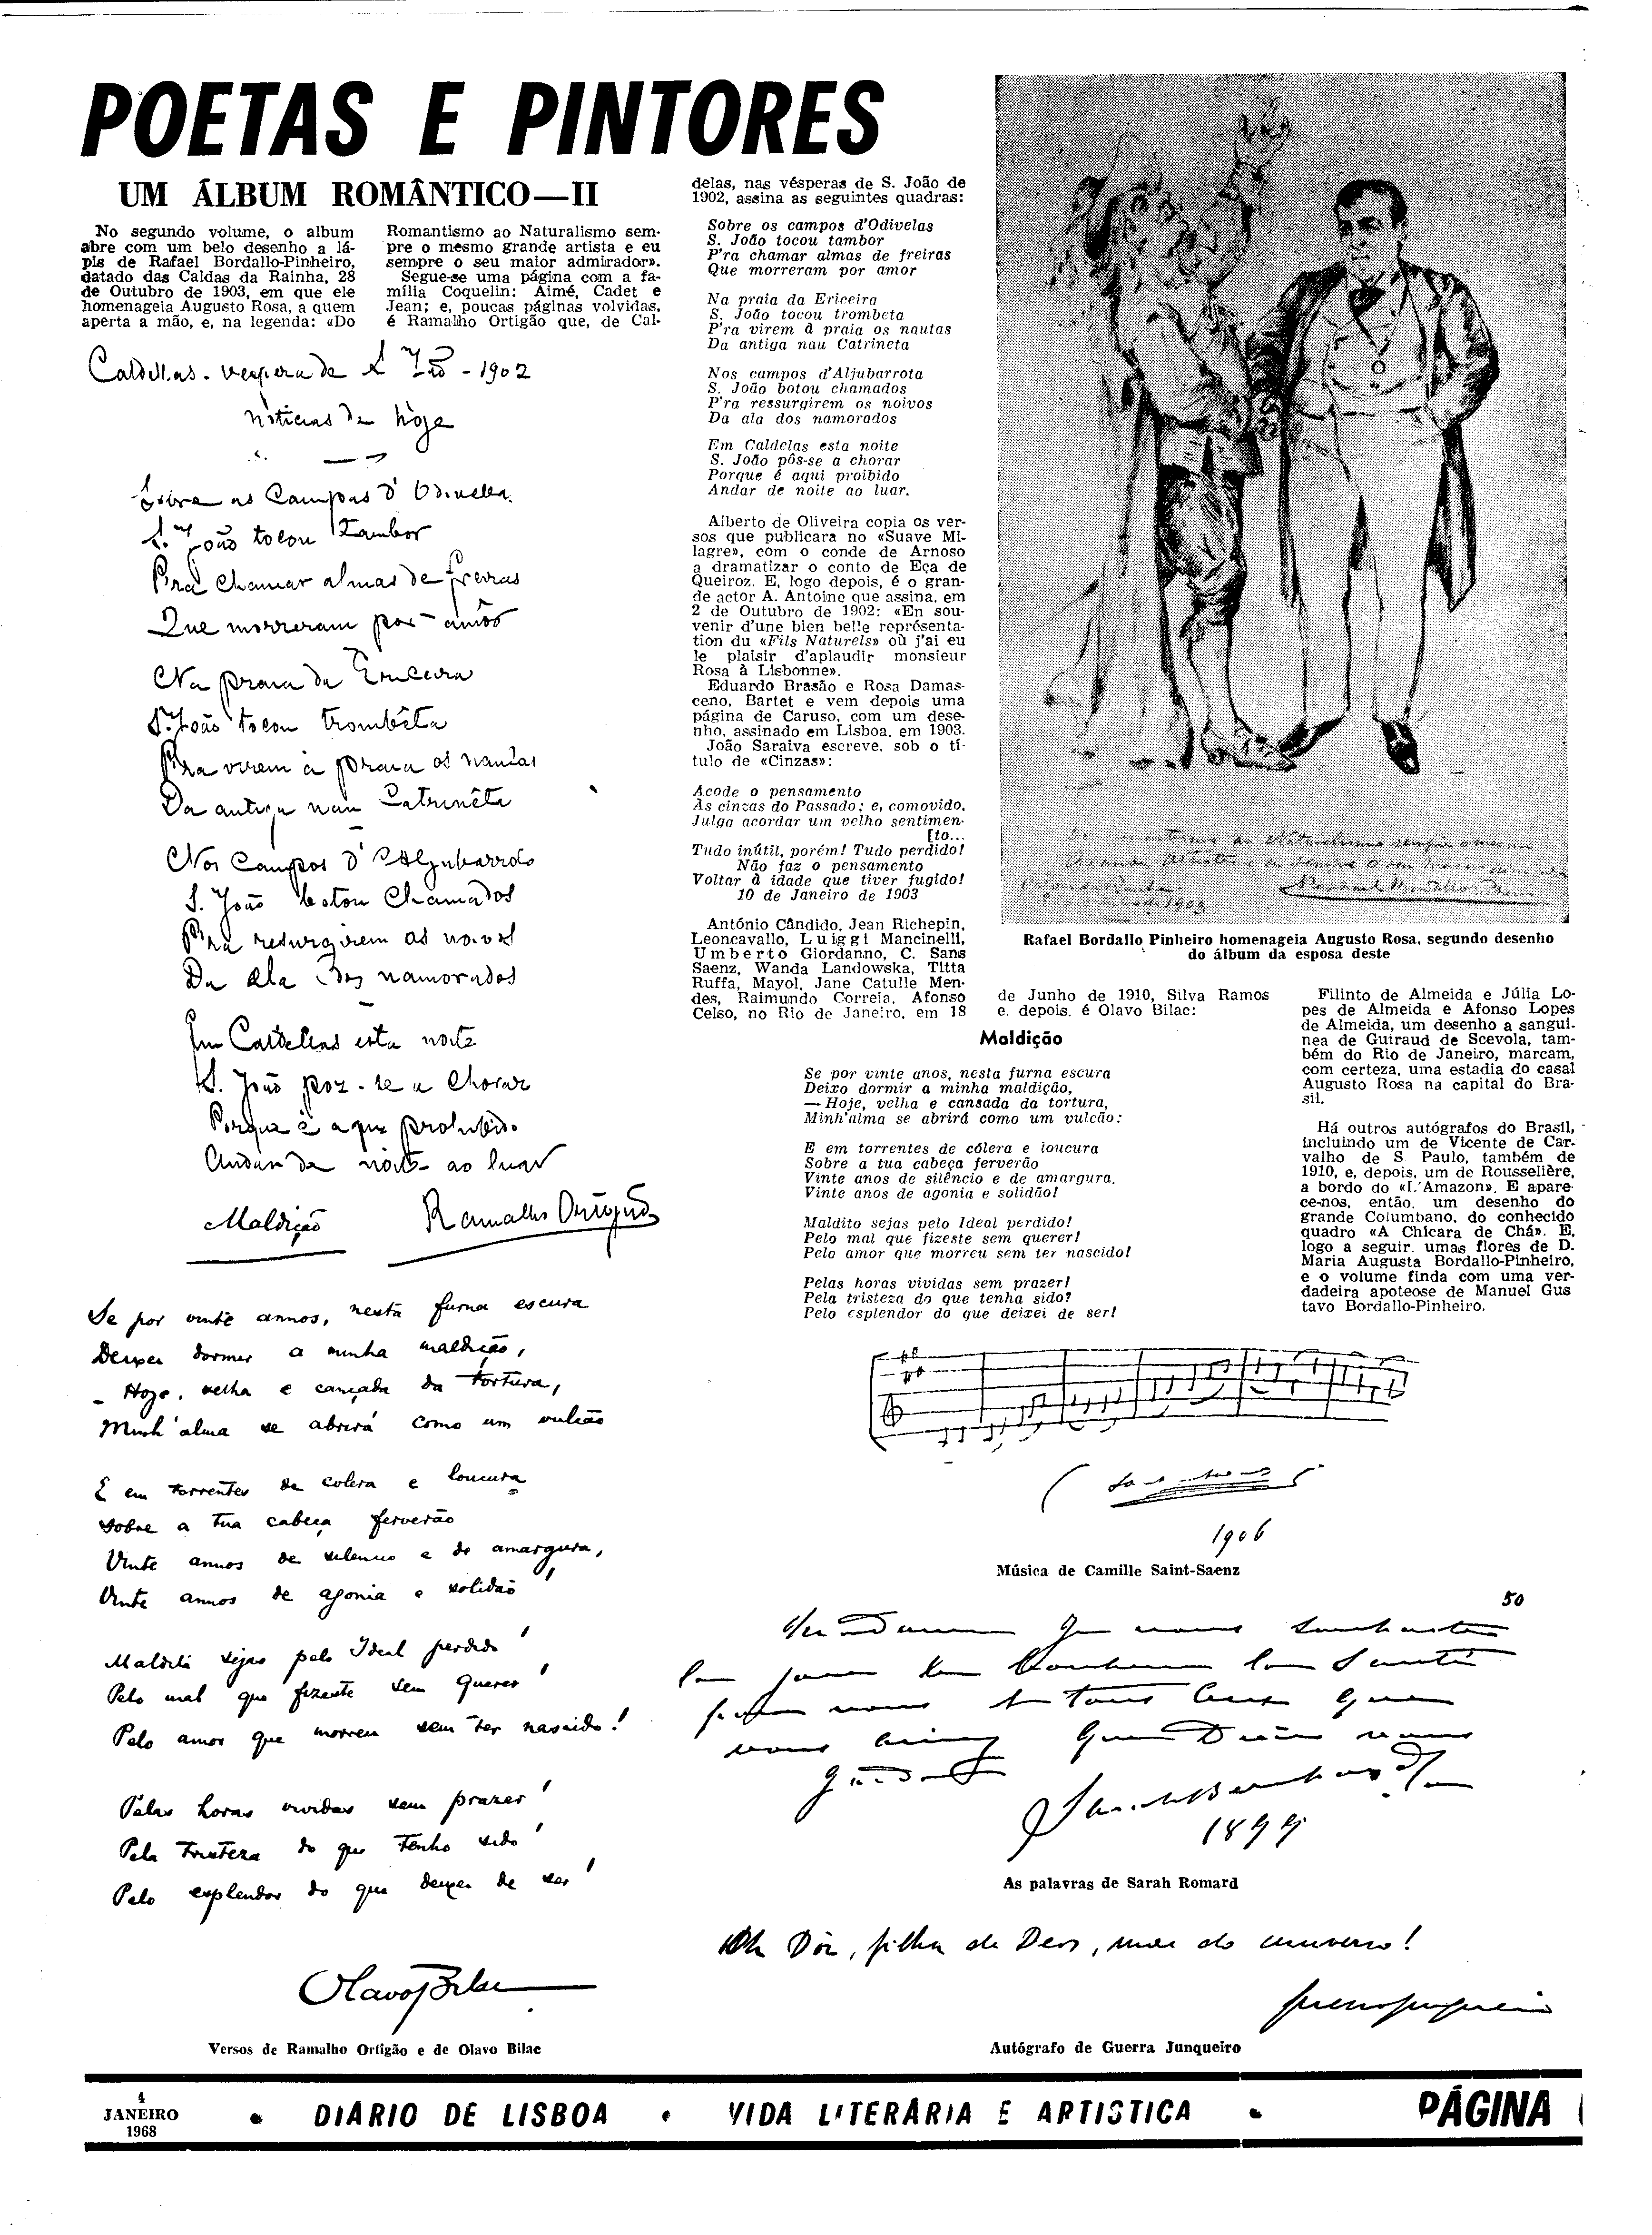 POETAS E PINTORES
UM ÁLBUM ROMÂNTICO—II
No segundo volume, o album
abre com um belo desenho a lá-
pis de Rafael Bordallo-Pinheiro,
datado das Caldas da Rainha, 28
de Outubro de 1903, em que ele
homenageia Augusto Rosa, a quem
aperta a mão, e, na legenda: «Do
Romantismo ao Naturalismo sem-
pre o mesmo grande artista e eu
sempre o seu maior admirador».
Segue-se uma página com a fa-
mília Coquelin: Aimé, Cadet e
Jean; e, poucas páginas volvidas,
é Ramalho Ortigão que, de Cal-
delas, nas vésperas de S. João de
1902, assina as seguintes quadras:
Sobre os campos d'Odivelas
S. João tocou tambor
P'ra chamar almas de freiras
Que morreram por amor
Na praia da Ericeira
S. João tocou trombeta
P'ra virem à praia os nautas
Da antiga nau Catrineta
Nos campos d'Aljubarrota
S. João botou chamados
P'ra ressurgirem os noivos
Da ala dos namorados
Em Caldelas esta noite
S. João pôs-se a chorar
Porque é aqui proibido
Andar de noite ao luar.
Alberto de Oliveira copia os ver-
sos que publicara no «Suave Mi-
lagre», com o conde de Arnoso
a dramatizar o conto de Eça de
Queiroz. E, logo depois, é o gran-
de actor A. Antoine que assina, em
2 de Outubro de 1902: «En sou-
venir d'une bien belle représenta-
tion du «Fils Naturels» où j'ai eu
le plaisir d'aplaudir monsieur
Rosa à Lisbonne».
Eduardo Brasão e Rosa Damas-
ceno, Bartet e vem depois uma
página de Caruso, com um dese-
nho, assinado em Lisboa, em 1903.
João Saraiva escreve, sob o tí-
tulo de «Cinzas»:
Acode o pensamento
Às cinzas do Passado; e, comovido,
Julga acordar um velho sentimen-
[to...
Tudo inútil, porém! Tudo perdido!
Não faz o pensamento
Voltar à idade que tiver fugido!
10 de Janeiro de 1903
António Cândido, Jean Richepin,
Leoncavallo, Luiggi Mancinelli,
Umberto Giordanno, C. Sans
Saenz, Wanda Landowska, Titta
Ruffa, Mayol, Jane Catulle Men-
des, Raimundo Correia, Afonso
Celso, no Rio de Janeiro, em 18
de Junho de 1910, Silva Ramos
e, depois, é Olavo Bilac:
Maldição
Se por vinte anos, nesta furna escura
Deixo dormir a minha maldição,
— Hoje, velha e cansada da tortura,
Minh'alma se abrirá como um vulcão:
E em torrentes de cólera e loucura
Sobre a tua cabeça ferverão
Vinte anos de silêncio e de amargura,
Vinte anos de agonia e solidão!
Maldito sejas pelo Ideal perdido!
Pelo mal que fizeste sem querer!
Pelo amor que morreu sem ter nascido!
Pelas horas vividas sem prazer!
Pela tristeza do que tenha sido?
Pelo esplendor do que deixei de ser!
Filinto de Almeida e Júlia Lo-
pes de Almeida e Afonso Lopes
de Almeida, um desenho a sangui-
nea de Guiraud de Scevola, tam-
bém do Rio de Janeiro, marcam,
com certeza, uma estadia do casal
Augusto Rosa na capital do Bra-
sil.
Há outros autógrafos do Brasil,
incluindo um de Vicente de Car-
valho de S Paulo, também de
1910, e, depois, um de Rousselière,
a bordo do «L'Amazon». E apare-
ce-nos, então, um desenho do
grande Columbano, do conhecido
quadro «A Chicara de Chá». E,
logo a seguir, umas flores de D.
Maria Augusta Bordallo-Pinheiro,
e o volume finda com uma ver-
dadeira apoteose de Manuel Gus
tavo Bordallo-Pinheiro.
Rafael Bordallo Pinheiro homenageia Augusto Rosa, segundo desenho
do álbum da esposa deste
Caldellas. vespera de S. João - 1902
Noticias de hoje
Sobre os Campos d'Odivellas
S. João tocou tambor
Pra chamar almas de freiras
Que morreram por amôr
Na praia da Ericeira
S. João tocou trombêta
Pra virem á praia os nautas
Da antiga nau Catrinêta
Nos Campos d'Aljubarrota
S. João botou chamados
Pra resurgirem os noivos
Da ala dos namorados
Em Caldellas esta noite
S. João poz-se a chorar
Porque é aqui prohibido
Andar de noite ao luar
Ramalho Ortigão
Maldição
Se por vinte annos, nesta furna escura
Deixei dormir a minha maldição,
- Hoje, velha e cançada da tortura,
Minh'alma se abrirá como um vulcão
E em torrentes de colera e loucura
Sobre a tua cabeça ferverão
Vinte annos de silencio e de amargura,
Vinte annos de agonia e solidão!
Maldito sejas pelo Ideal perdido!
Pelo mal que fizeste sem querer!
Pelo amor que morreu sem ter nascido!
Pelas horas vividas sem prazer!
Pela tristeza do que tenho sido!
Pelo esplendor do que deixei de ser!
Olavo Bilac
Versos de Ramalho Ortigão e de Olavo Bilac
1906
Música de Camille Saint-Saenz
50
Sarah Bernhardt
1899
As palavras de Sarah Romard
Oh Dôr, filha de Deos, mãe do universo!
Guerra Junqueiro
Autógrafo de Guerra Junqueiro
4
JANEIRO
1968
• DIÁRIO DE LISBOA • VIDA LITERÁRIA E ARTISTICA •
PÁGINA